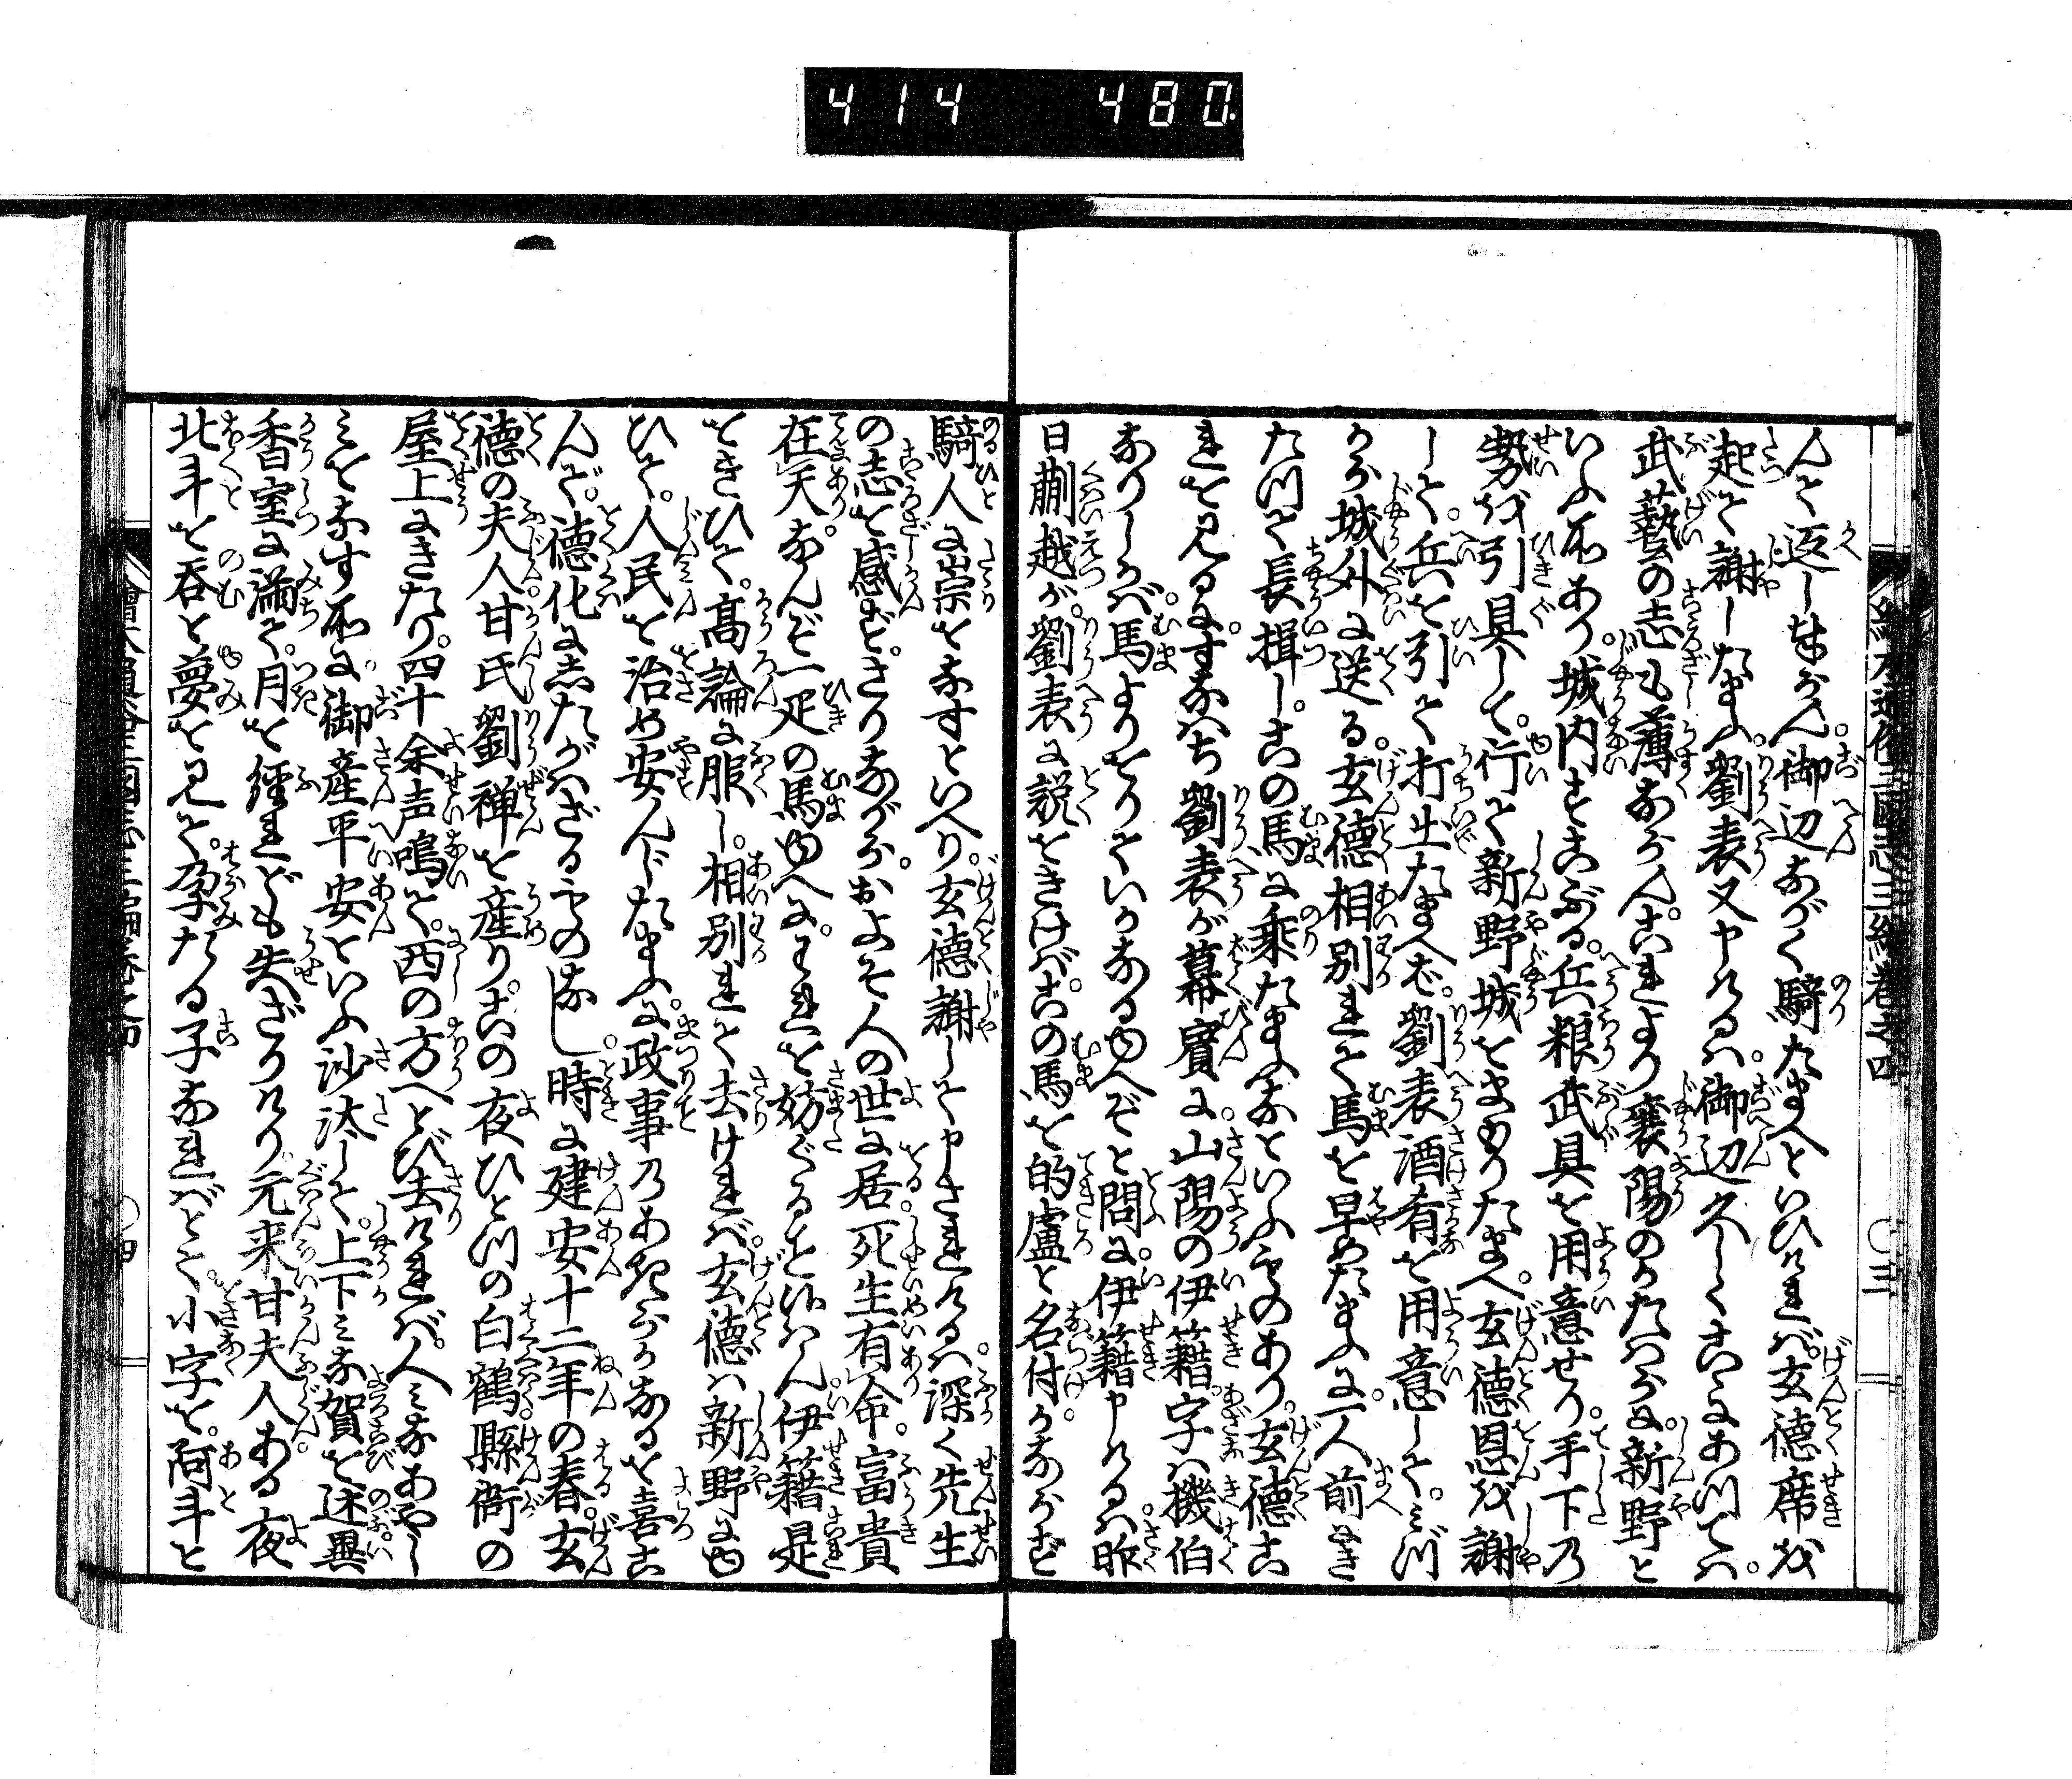 414 480
繪本通俗三國志三編巻之四 〇三
んを返し奉らん。御辺ながく騎たまへといひければ。玄徳席を
起て謝したまふ。劉表又申けるハ。御辺久しくこゝにあつてハ。
武藝の志も薄なからん。これより襄陽のかたハらに。新野と
いふ所あり。城内すこぶる。兵粮武具を用意せり。手下の
勢を引具して。行て新野城をまもりたまへ。玄徳恩を謝
して。兵を引て打出たまへバ。劉表酒肴を用意して。みづ
から城外に送る。玄徳相別れて馬を早めたまふに。一人前にき
たつて長揖し。この馬に乗たまふなといふものあり。玄徳こ
れを見るに。すなハち劉表が幕賓に。山陽の伊籍字ハ機伯
なりしかバ。馬よりをりていかなるゆへぞと問に。伊籍申けるハ。昨
日蒯越が。劉表に説をきけバ。この馬を的盧と名付。かならず
騎人に祟をなすといへり。玄徳謝して申されけるハ。深く先生
の志を感ず。さりながら。およそ人の世に居。死生有命。富貴
在天。なんぞ一疋の馬ゆへに。これを妨ぐることあらん。伊籍是
をきひて。高論に服し。相別れて去けれバ。玄徳ハ新野にゆ
ひて。人民を治め安んじたまふに。政事のあきらかなるを喜こ
んで。徳化にしたがハざるものなし。時に建安十二年の春。玄
徳の夫人甘氏。劉禅を産り。この夜ひとつの白鶴。縣衙の
屋上にきたり。四十余声鳴て。西の方へとび去けれバ。人みなあやし
みをなす所に。御産平安といふ沙汰して。上下みな賀を述。異
香室に満て。月を経れども失ざりけり。元来甘夫人ある夜
北斗を呑と夢を見て。孕たる子なれバとて。小字を。阿斗と
〇四